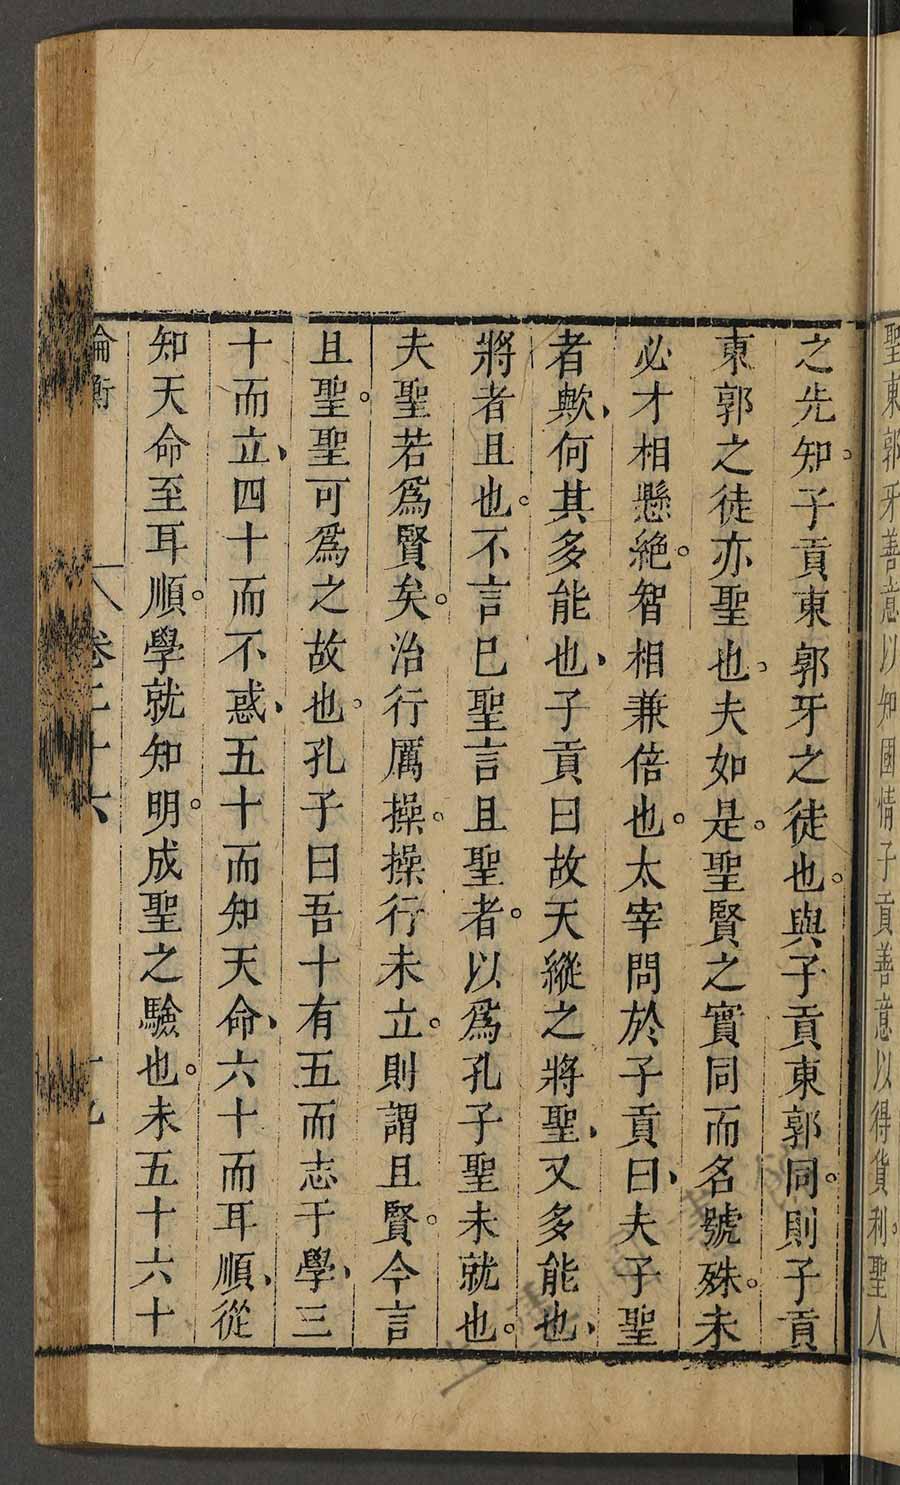 聖東郭牙善意以知國情子貢善意以得貨利聖人
之先知。子貢東郭牙之徒也。與子貢東郭同。則子貢
東郭之徒亦聖也。夫如是。聖賢之實同而名號殊。未
必才相懸絶。智相兼倍也。太宰問於子貢曰、夫子聖
者歟、何其多能也、子貢曰故天縱之將聖、又多能也、
將者且也。不言巳聖言且聖者。以爲孔子聖未就也。
夫聖若爲賢矣。治行厲操。操行未立。則謂且賢。今言
且聖。聖可爲之故也。孔子曰吾十有五而志于學、三
十而立、四十而不惑、五十而知天命、六十而耳順、從
知天命至耳順。學就知明。成聖之驗也。未五十六十
論衡 卷二十六 十九